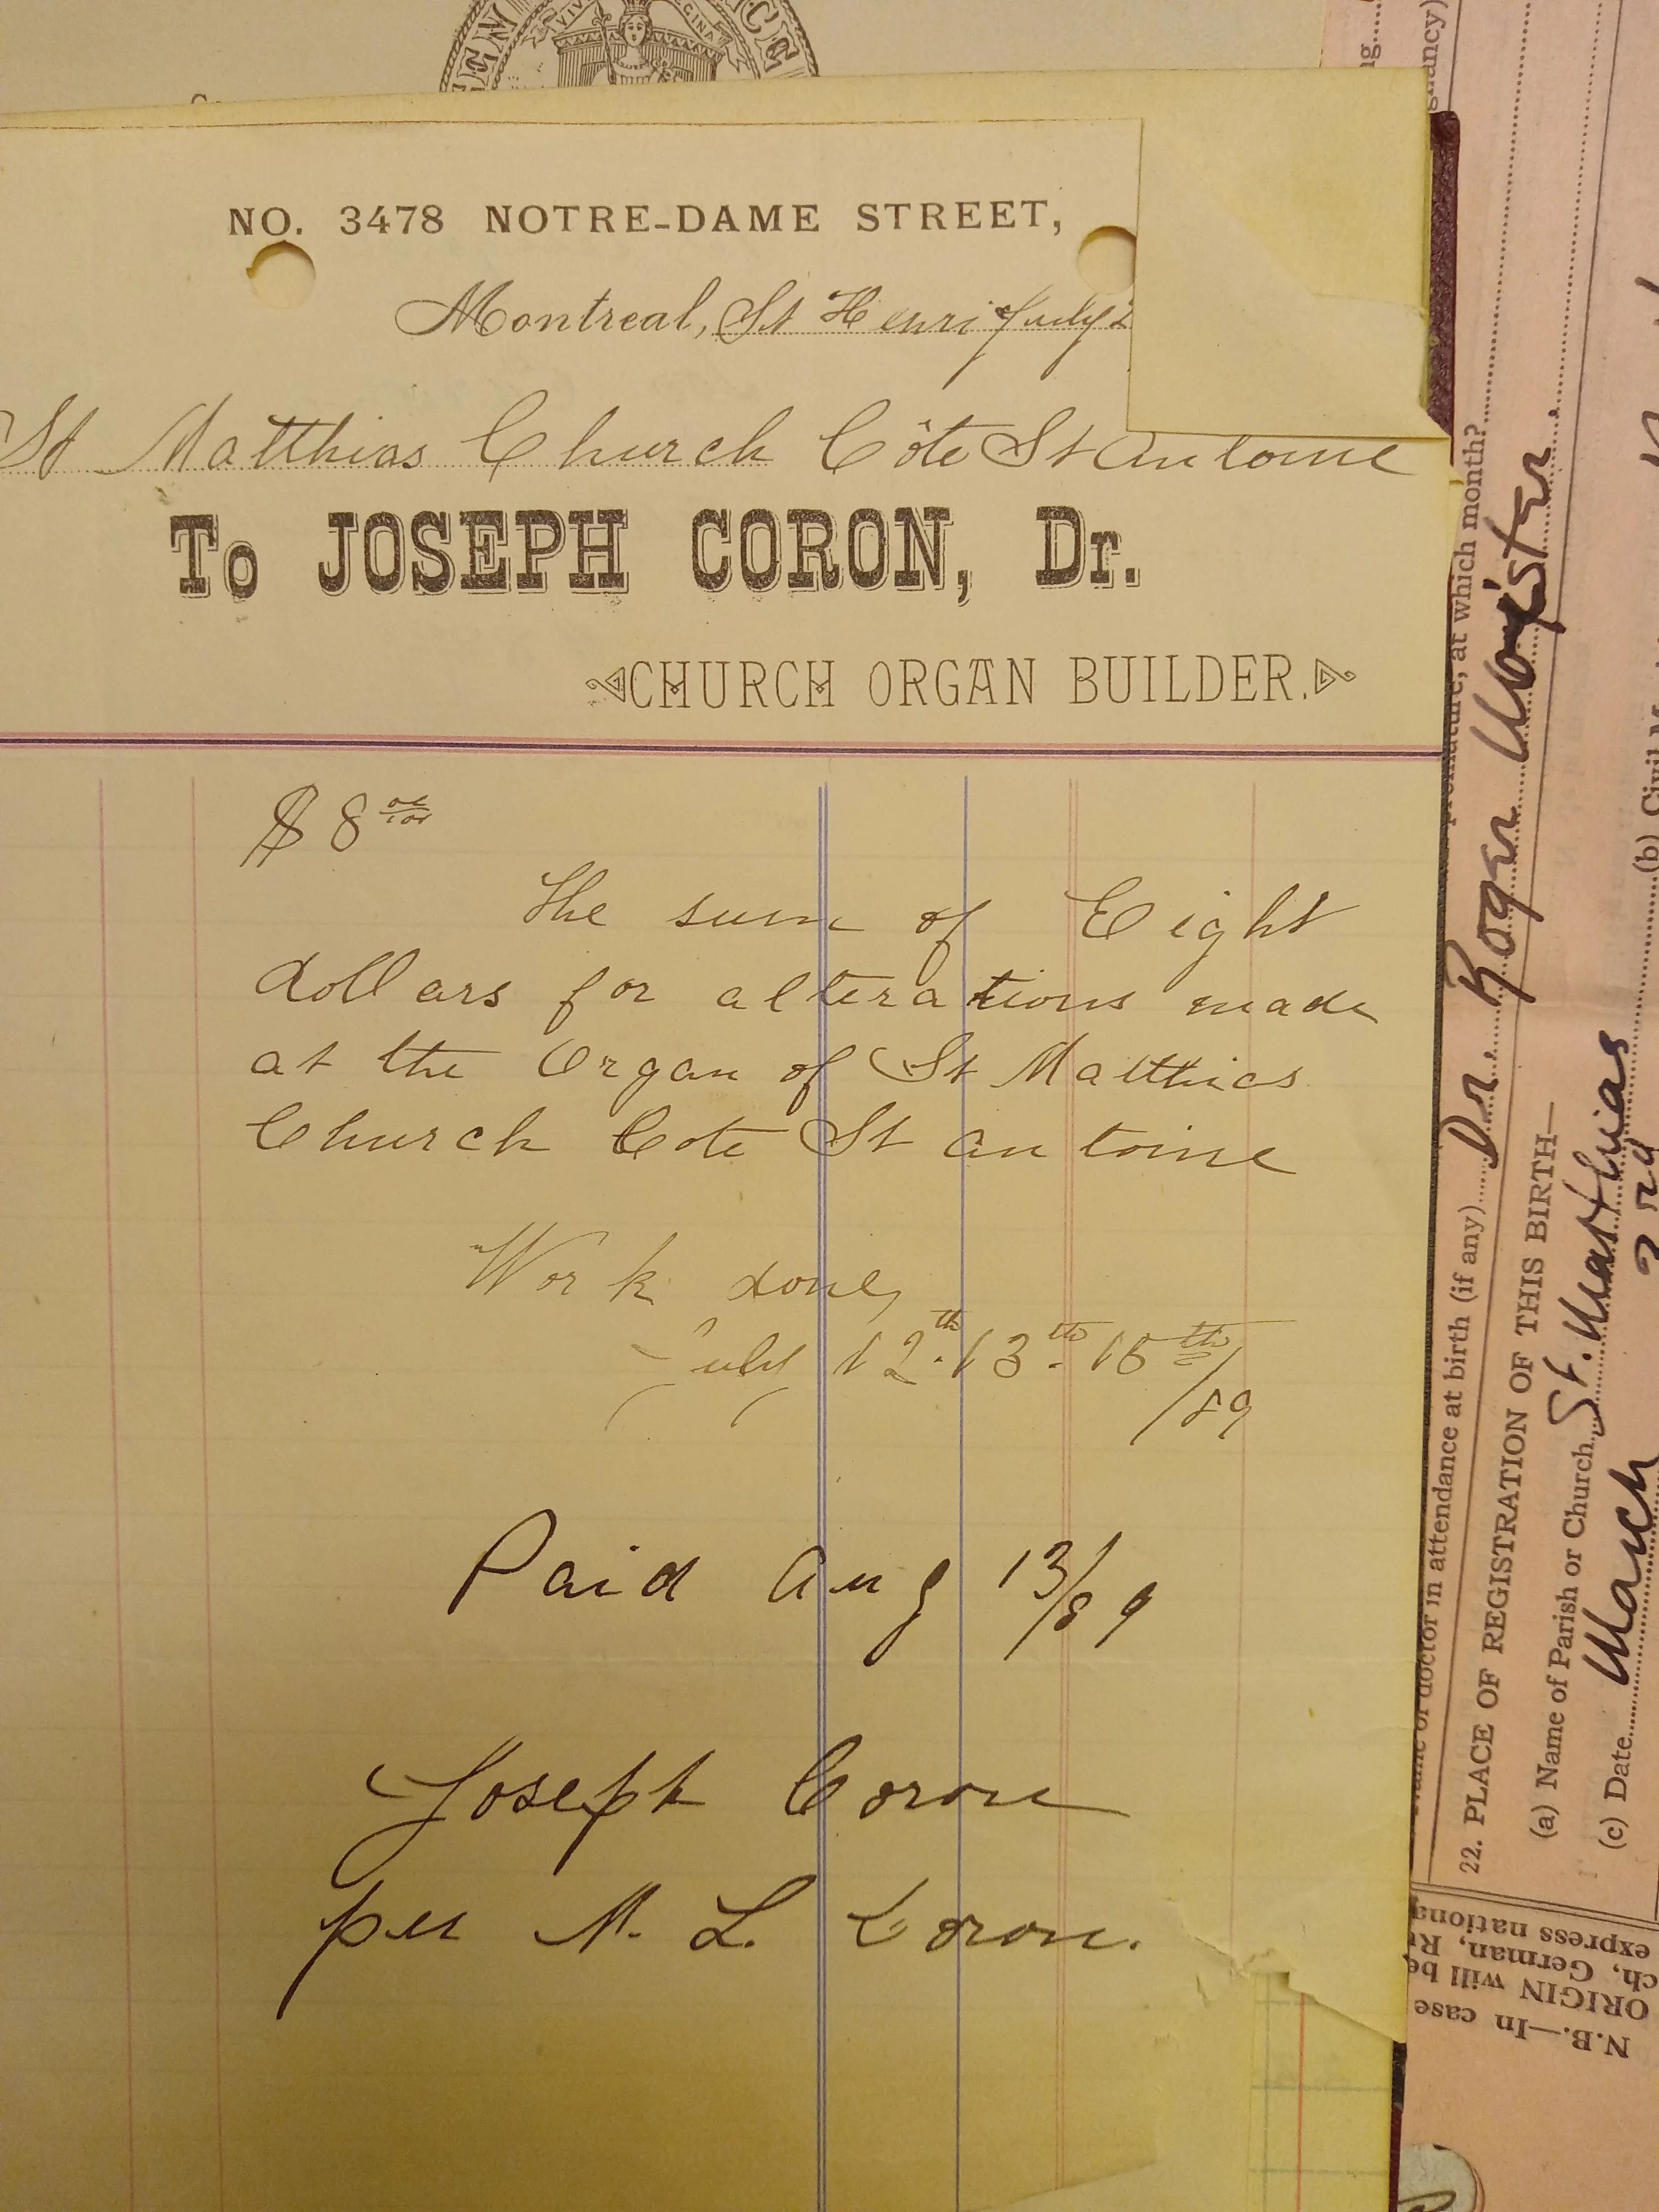 VIV
GINA
NO. 3478 NOTRE-DAME STREET,
Montreal, St Henri July
St Matthias Church Côte St Antoine
To JOSEPH CORON, Dr.
CHURCH ORGAN BUILDER.
$ 8 00/100
The sum of Eight
dollars for alterations made
at the Organ of St Matthias
Church Cote St Antoine
Work done,
July 12th. 13th. 15th
/89
Paid Aug 13/89
Joseph Coron
per M. L. Coron.
at which month?
doctor in attendance at birth (if any) Dr. Roger
22. PLACE OF REGISTRATION OF THIS BIRTH—
(a) Name of Parish or Church St. Matthias
(c) Date March
(b) Civil
N.B.—In case
ORIGIN will be
ch, German,
express nationa